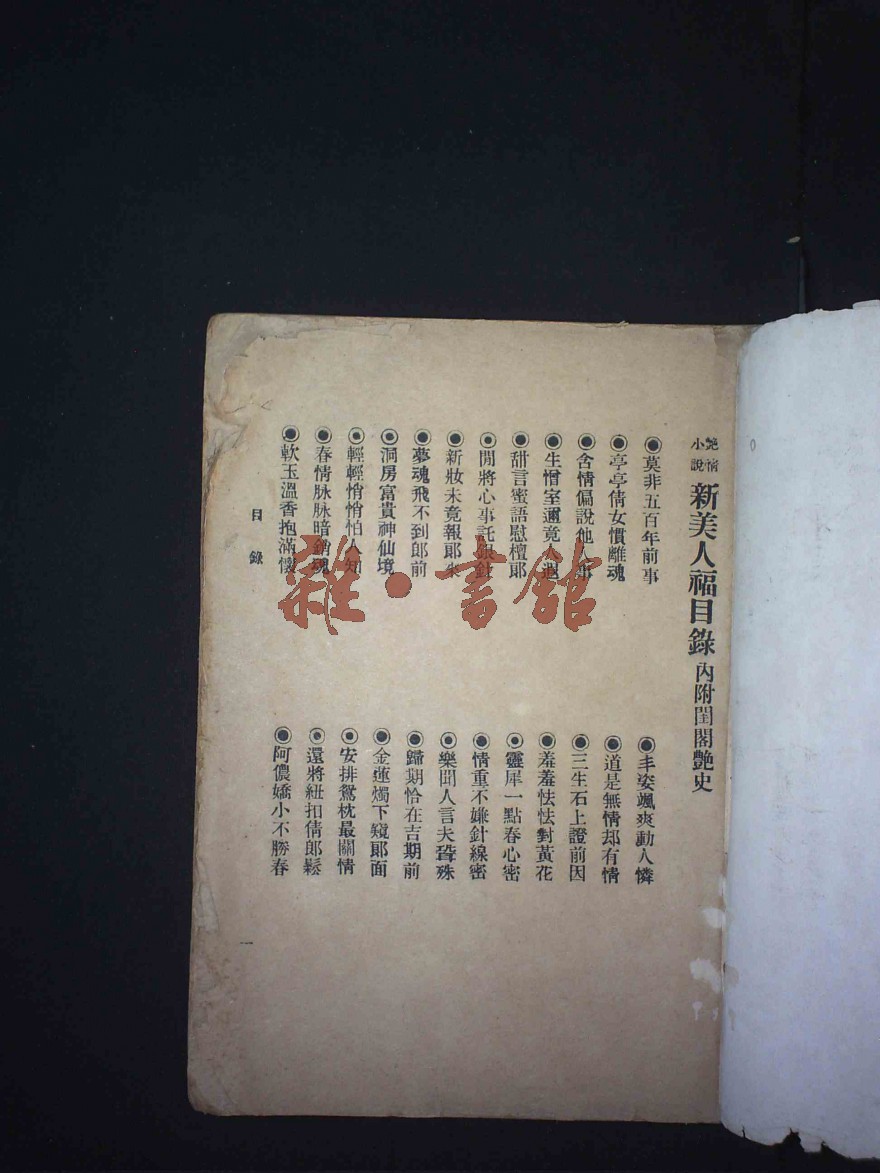 艷情小說 新美人福目錄 內附閨閣艷史
◉莫非五百年前事
◉丰姿颯爽動人憐
◉亭亭倩女慣離魂
◉道是無情却有情
◉含情偏說他人事
◉三生石上證前因
◉生憎室邇竟人遐
◉羞羞怯怯對黃花
◉甜言蜜語慰檀郞
◉靈犀一點春心密
◉閒將心事託銀針
◉情重不嫌針線密
◉新妝未竟報郞來
◉樂聞人言夫聟殊
◉夢魂飛不到郞前
◉歸期恰在吉期前
◉洞房富貴神仙境
◉金蓮燭下窺郞面
◉輕輕悄悄怕人知
◉安排鴛枕最關情
◉春情脉脉暗銷魂
◉還將紐扣倩郞鬆
◉軟玉溫香抱滿懷
◉阿儂嬌小不勝春
目錄
一
雜·書館